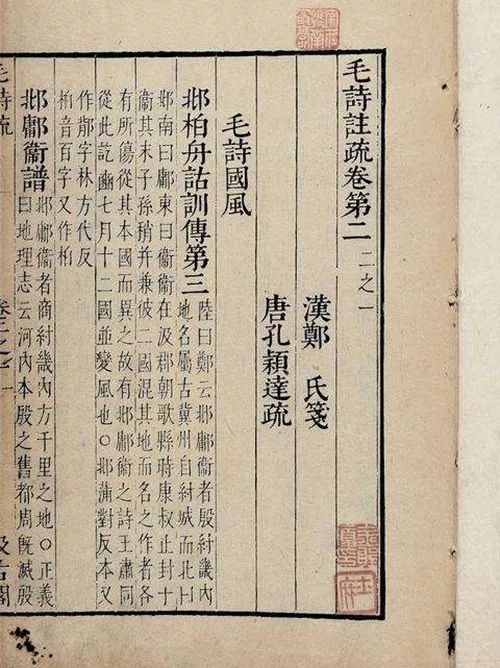 毛詩註疏卷第二 二之一
漢鄭 氏箋
唐孔穎達疏
毛詩國風
邶柏舟詁訓傳第三
陸曰鄭云邶鄘衞者殷紂畿內
地名屬古冀州自紂城而北曰
邶南曰鄘東曰衞衞在汲郡朝歌縣時康叔止封于
衞其末子孫稍并兼彼二國混其地而名之作者各
有所傷從其本國而異之故有邶鄘衞之詩王肅同
從此訖豳七月十二國並變風也○邶蒲對反本又
作鄁字林方代反
柏音百字又作栢
邶鄘衞譜
邶鄘衞者商紂畿內方千里之地○正義
曰地理志云河內本殷之舊都周旣滅殷
毛詩疏
卷二之一
汲古閣